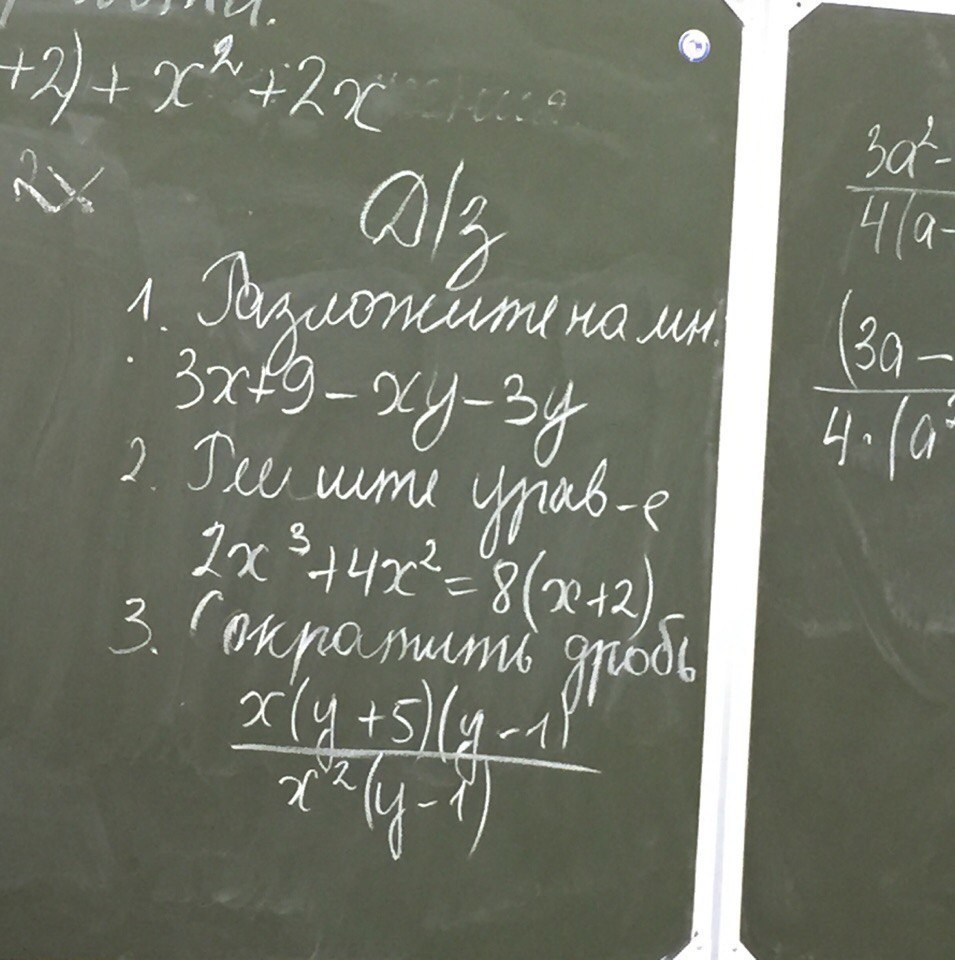 +2) + x² + 2x
2x
Д/з
1. Разложите на мн.
3x+9 - xy - 3y
2. Решите урав-е
2x³+4x² = 8(x+2)
3. Сократить дробь
x(y+5)(y-1)
x²(y-1)
3a²-
4(a-
(3a-
4·(a²